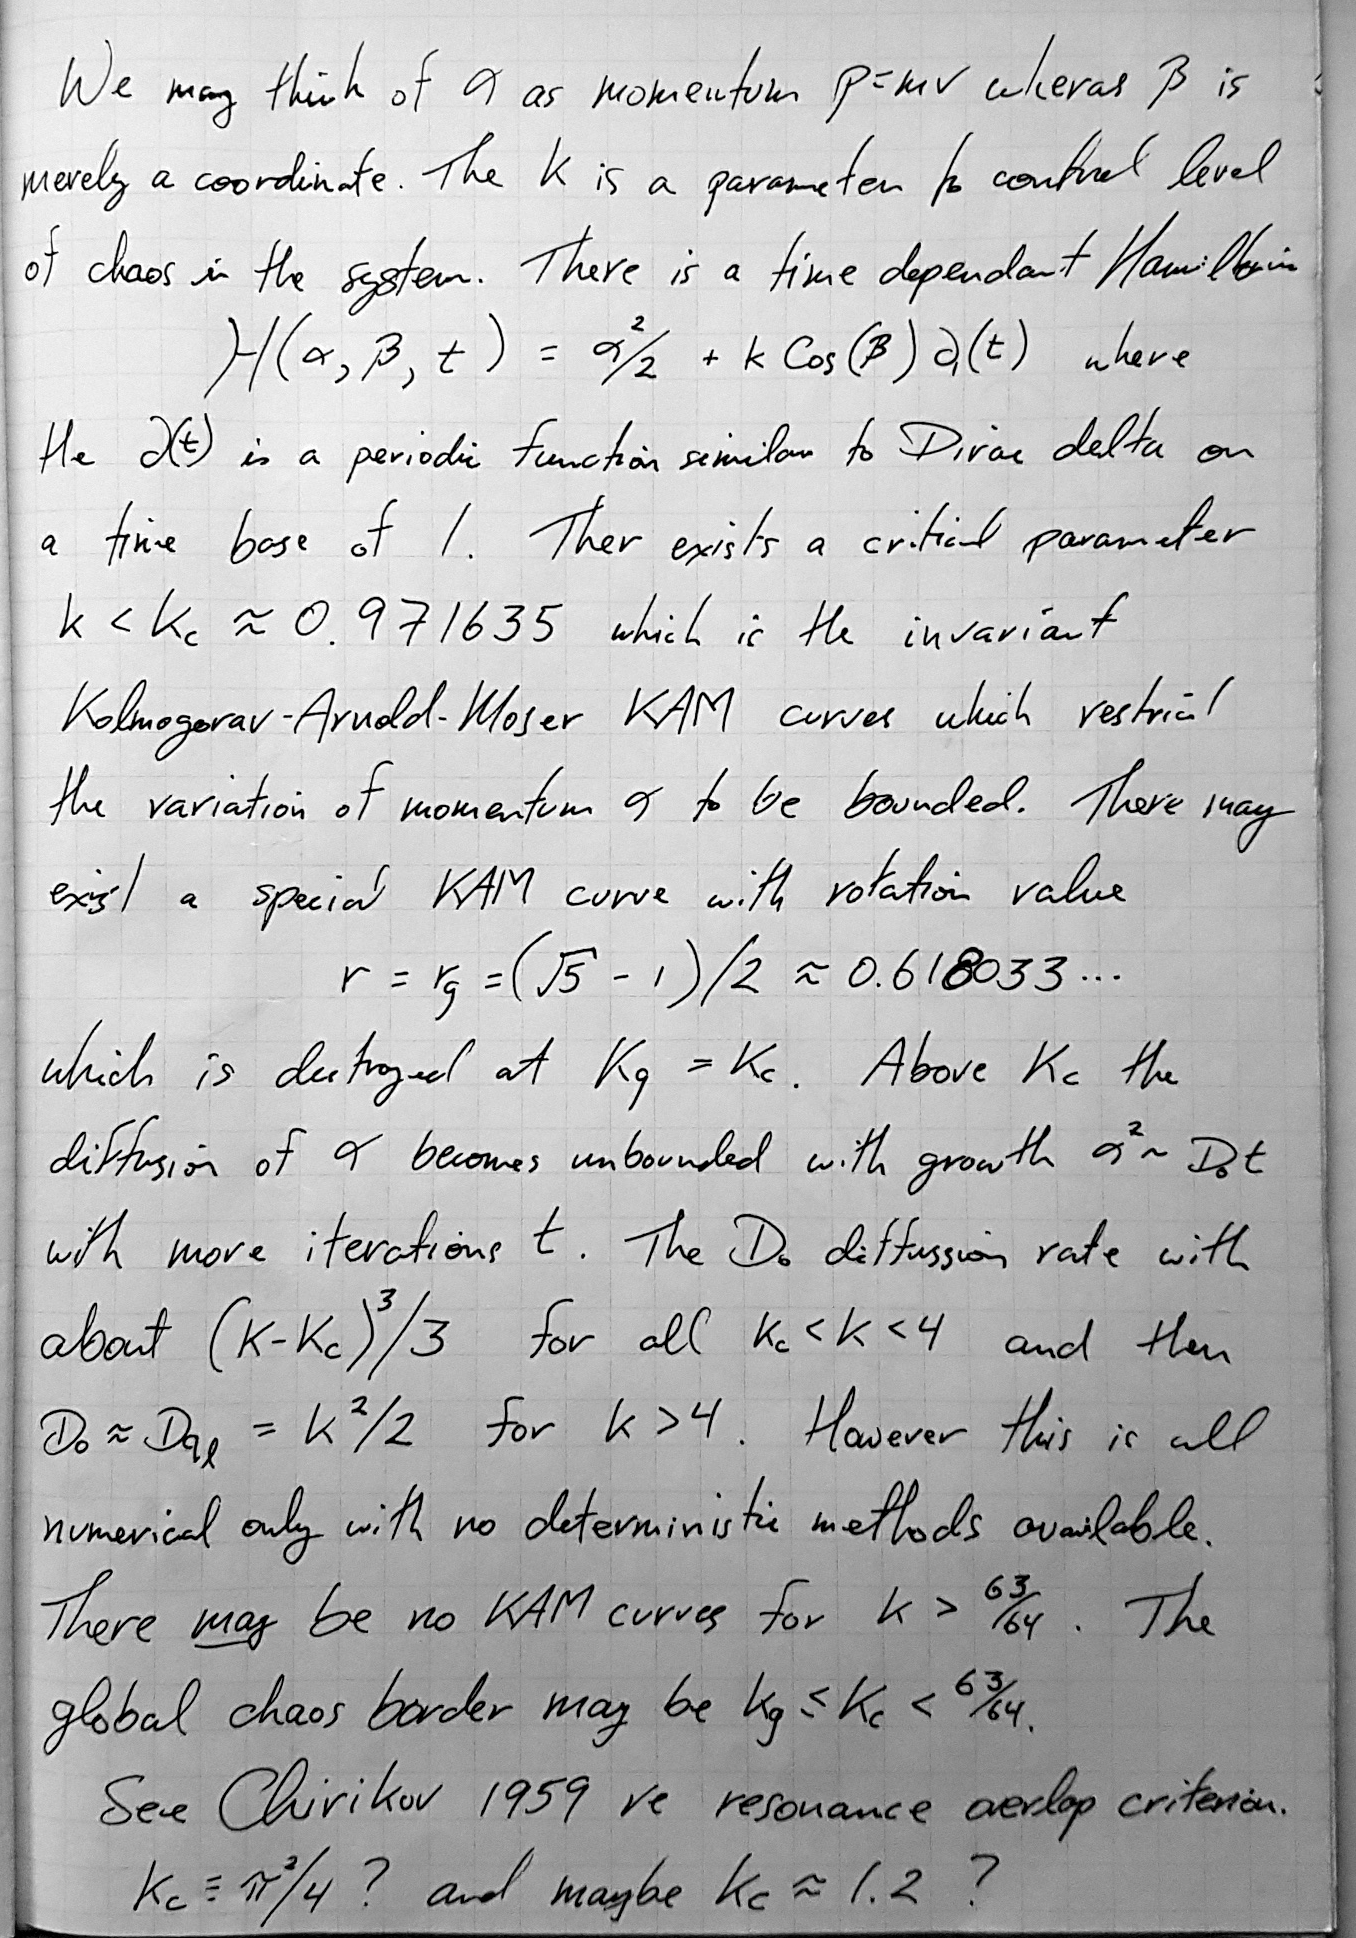 We may think of α as momentum p=mv wheras β is
merely a coordinate. The k is a parameter to control level
of chaos in the system. There is a time dependant Hamiltonin
H(α, β, t) = α²/2 + k Cos(β) ∂₁(t) where
the ∂(t) is a periodic function similar to Dirac delta on
a time base of 1. Ther exists a critical parameter
k < Kc ≈ 0.971635 which is the invariant
Kolmogorav-Arnold-Moser KAM curves which restrict
the variation of momentum α to be bounded. There may
exist a special KAM curve with rotation value
r = rg = (√5 - 1)/2 ≈ 0.618033...
which is destroyed at Kg = Kc. Above Kc the
diffusion of α becomes unbounded with growth α² ~ D₀t
with more iterations t. The D₀ diffussion rate with
about (K-Kc)³/3 for all Kc < K < 4 and then
D₀ ≈ Dql = K²/2 for k > 4. However this is all
numerical only with no deterministic methods available.
There may be no KAM curves for k > 63/64. The
global chaos border may be kg ≤ Kc < 63/64.
See Chirikov 1959 re resonance overlap criterion.
Kc ≡ π²/4 ? and maybe Kc ≈ 1.2 ?